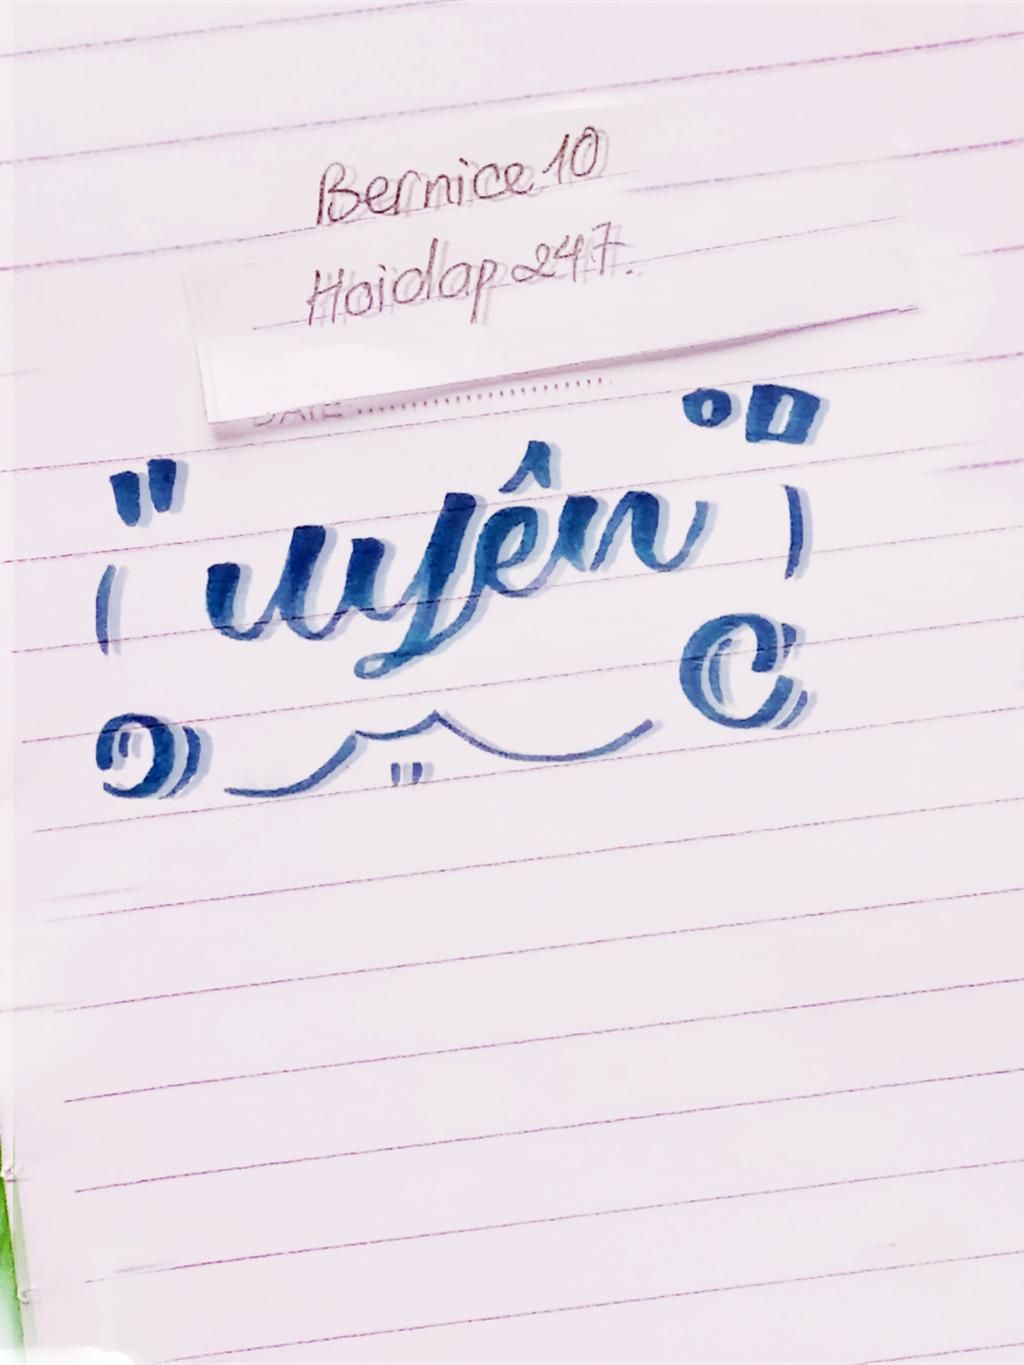 Bernice 10
Hoidap 247.
DATE
"uyên"